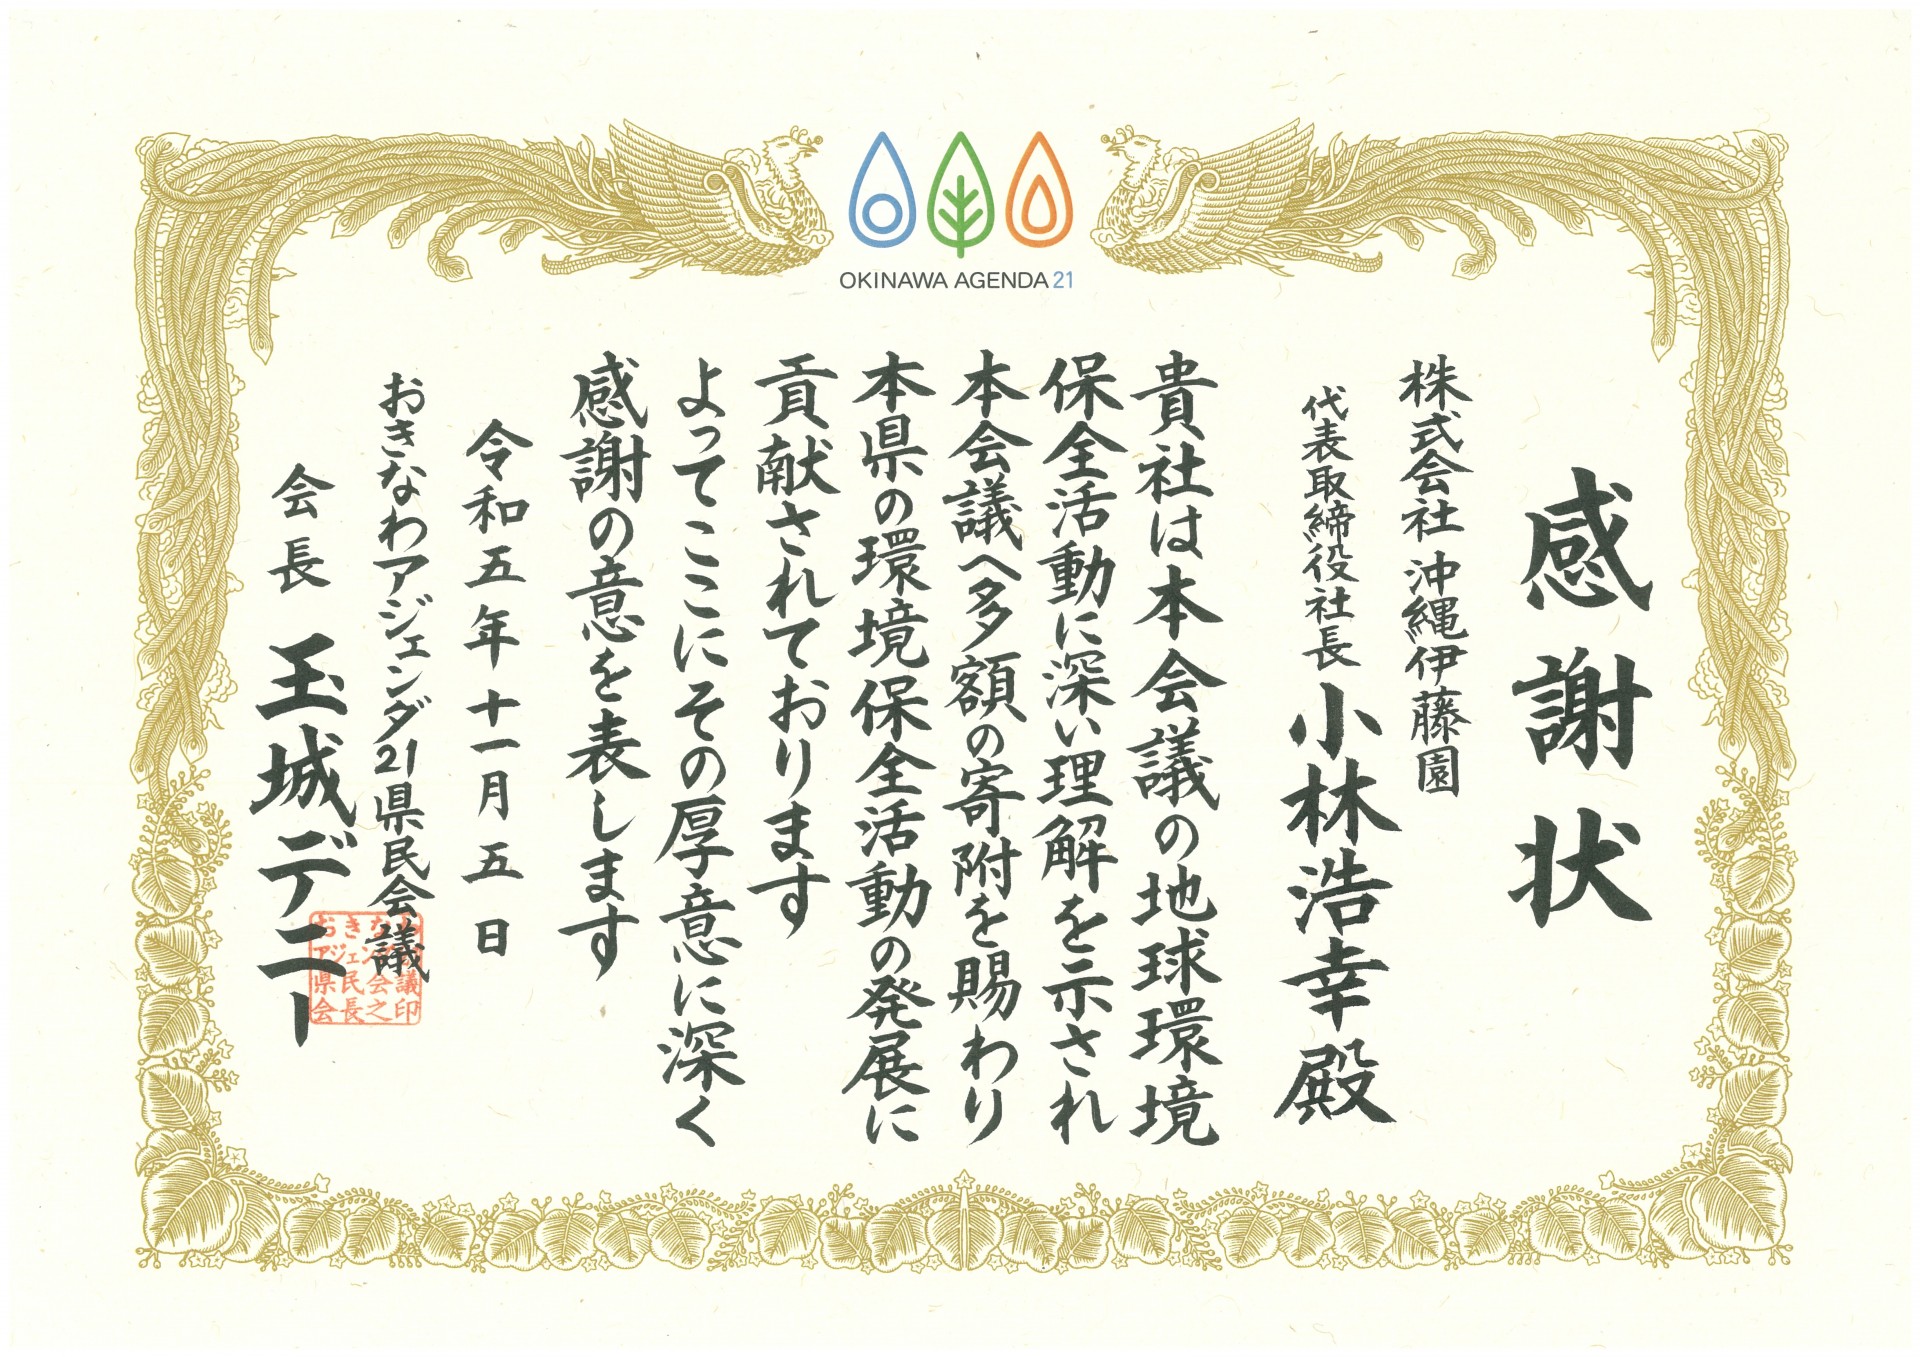 OKINAWA AGENDA 21
感謝状
株式会社 沖縄伊藤園
代表取締役社長 小林浩幸 殿
貴社は本会議の地球環境
保全活動に深い理解を示され
本会議へ多額の寄附を賜わり
本県の環境保全活動の発展に
貢献されております
よってここにその厚意に深く
感謝の意を表します
令和五年十一月五日
おきなわアジェンダ21県民会議
会長 玉城デニー